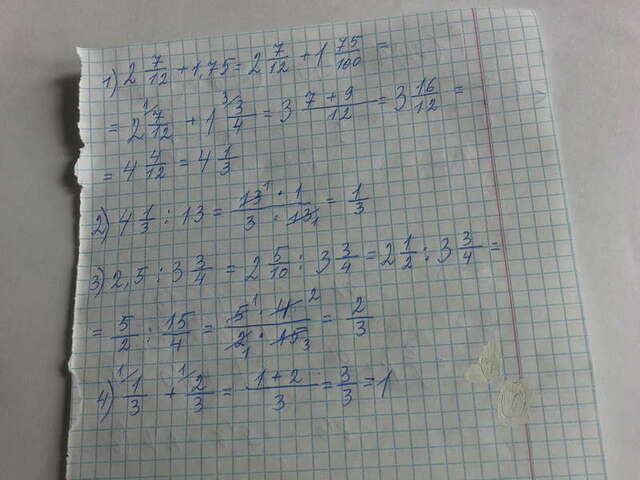 1) 2 7/12 + 1,75 = 2 7/12 + 1 75/100 =
= 2 7/12 + 1 3/4 = 3 (7 + 9)/12 = 3 16/12 =
= 4 4/12 = 4 1/3
2) 4 1/3 : 13 = (13 · 1)/(3 · 13) = 1/3
3) 2,5 : 3 3/4 = 2 5/10 : 3 3/4 = 2 1/2 : 3 3/4 =
= 5/2 : 15/4 = (5 · 4)/(2 · 15) = 2/3
4) 1/3 + 2/3 = (1 + 2)/3 = 3/3 = 1